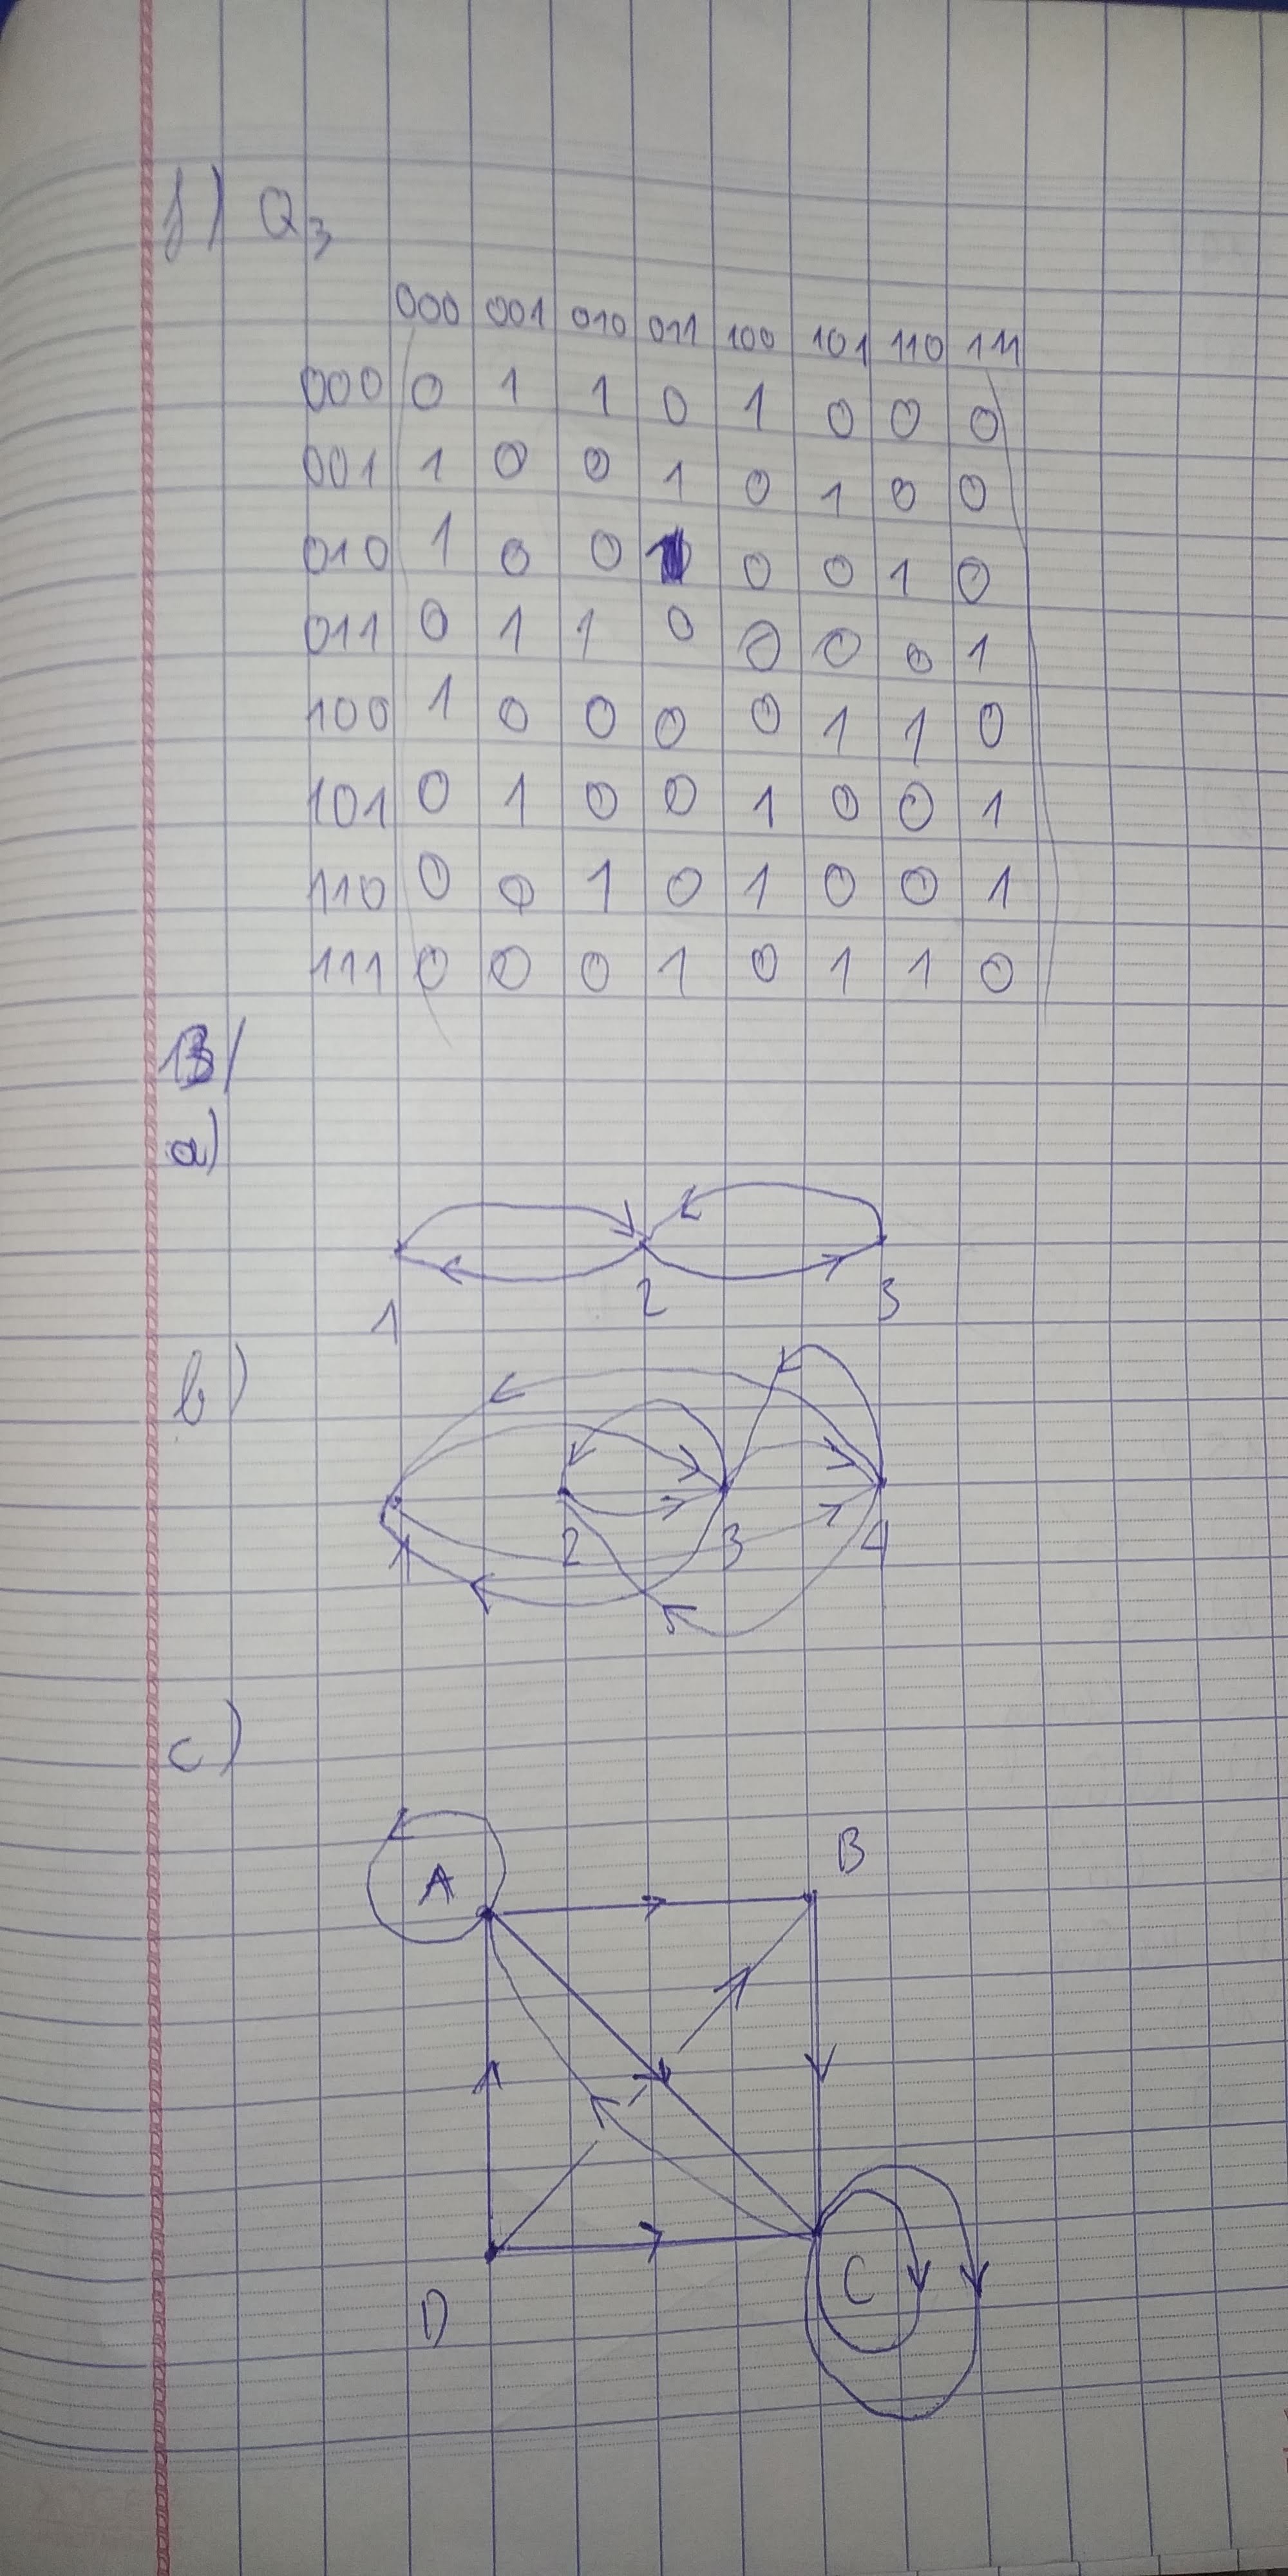 f) Q3
000 001 010 011 100 101 110 111
000 0 1 1 0 1 0 0 0
001 1 0 0 1 0 1 0 0
010 1 0 0 1 0 0 1 0
011 0 1 1 0 0 0 0 1
100 1 0 0 0 0 1 1 0
101 0 1 0 0 1 0 0 1
110 0 0 1 0 1 0 0 1
111 0 0 0 1 0 1 1 0
13/
a)
1 2 3
b)
1 2 3 4
c)
A B
D C